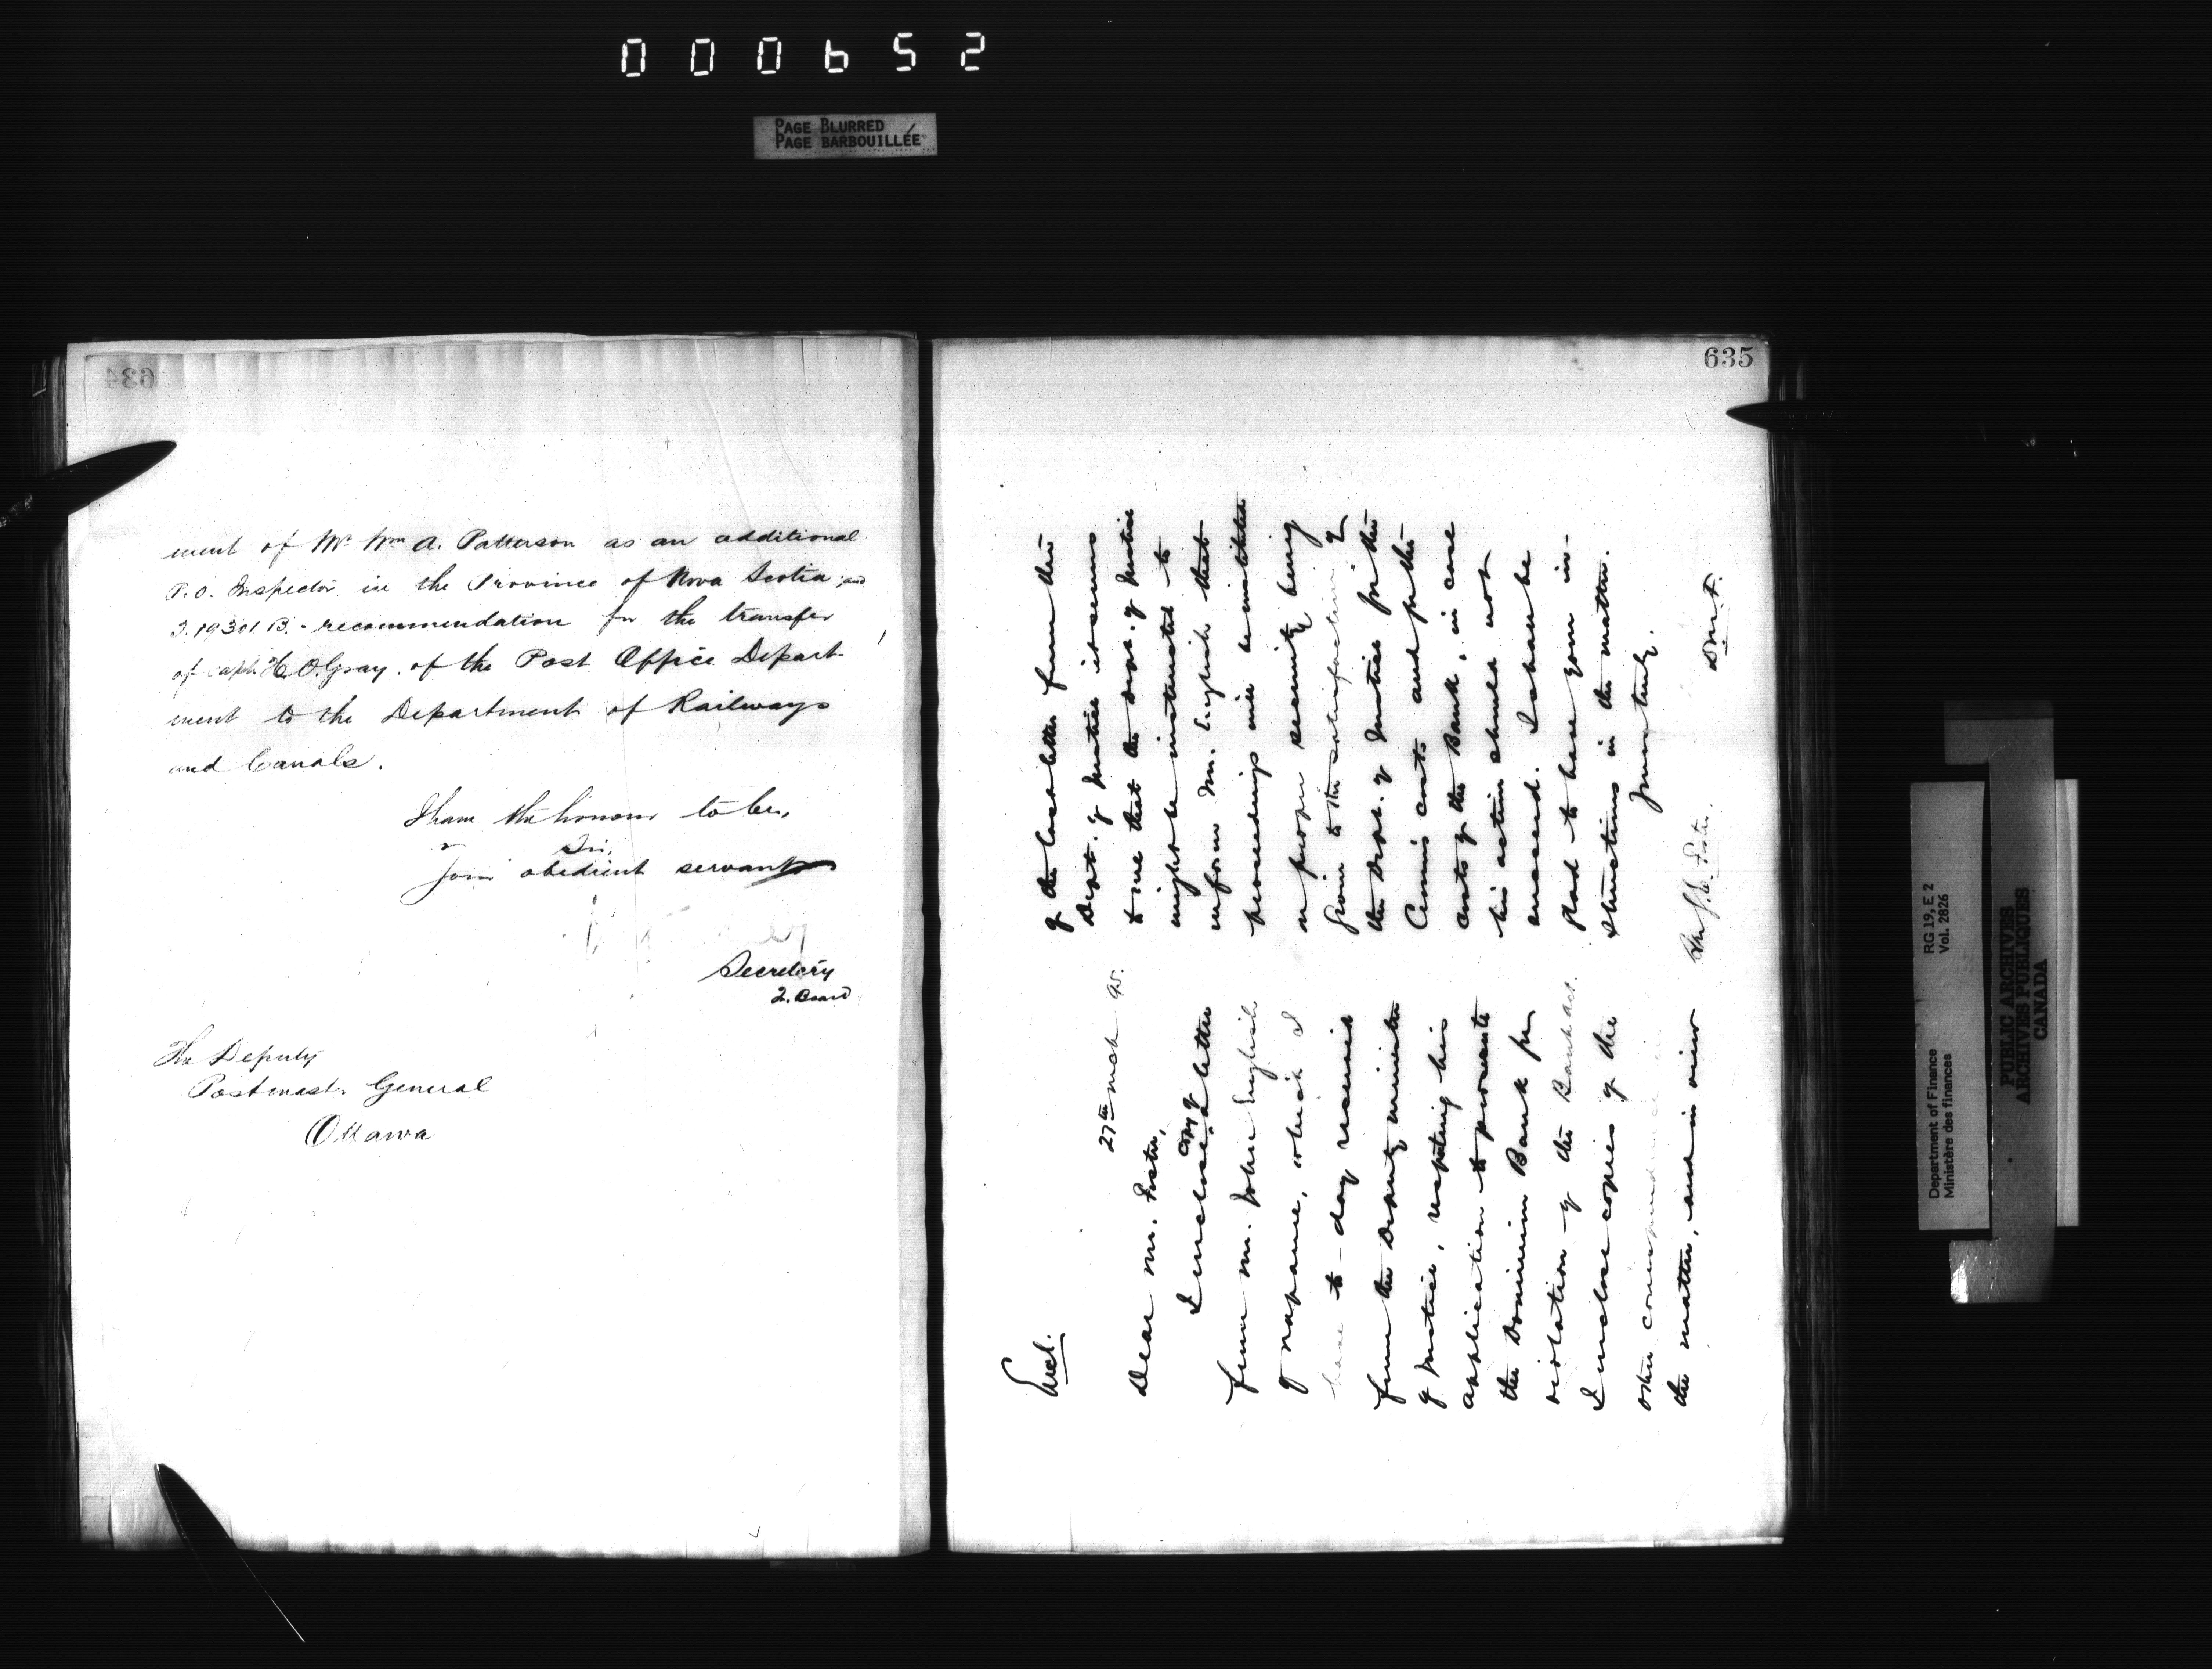 000652
PAGE BLURRED
PAGE BARBOUILLÉE
634
ment of Mr Wm A. Patterson as an additional
P.O. Inspector in the Province of Nova Scotia; and
recommendation for the transfer
of Capt. H. O. Gray of the Post Office Depart-
ment to the Department of Railways
and Canals.
I have the honour to be,
Sir,
Your obedient servant
Secretary
T. Board
The Deputy
Postmaster General
Ottawa
635
Encl.
27th March 95.
Dear Mr. Foster,
I enclose copy of letter
from Mr. John English
of Napanee, which I
have to-day received
from the Deputy Minister
of Justice, respecting his
application to prosecute
the Dominion Bank for
violation of the Bank Act.
I enclose copies of the
other correspondence in
the matter, and in view
of the last letter from the
Dept. of Justice it seems
to me that the Dept. of Justice
might be instructed to
inform Mr. English that
proceedings will be instituted
on proper security being
given to the satisfaction of
the Dept. of Justice for the
Crown's costs and for the
costs of the Bank, in case
his action should not
succeed. I shall be
glad to have your in-
structions in the matter.
Yours truly,
The Foster
Department of Finance
Ministère des finances
RG 19, E 2
Vol. 2826
PUBLIC ARCHIVES
ARCHIVES PUBLIQUES
CANADA